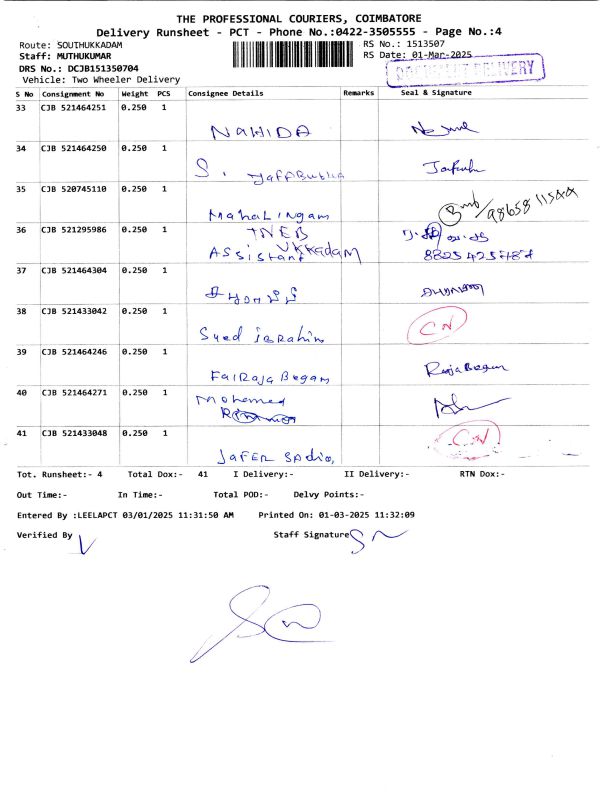 THE PROFESSIONAL COURIERS, COIMBATORE
Delivery Runsheet - PCT - Phone No.:0422-3505555 - Page No.:4
Route: SOUTHUKKADAM RS No.: 1513507
Staff: MUTHUKUMAR RS Date: 01-Mar-2025
DRS No.: DCJB151350704 DOCUMENT DELIVERY
Vehicle: Two Wheeler Delivery
S No Consignment No Weight PCS Consignee Details Remarks Seal & Signature
33 CJB 521464251 0.250 1
NAHIDA
34 CJB 521464250 0.250 1
S.
35 CJB 520745110 0.250 1
MahaLingam
36 CJB 521295986 0.250 1 TNEB
Assistant UKKadam
37 CJB 521464304 0.250 1
38 CJB 521433042 0.250 1
Syed ibrahim CN
39 CJB 521464246 0.250 1
FaiRaja Begam Raja Begam
40 CJB 521464271 0.250 1 Mohamed
41 CJB 521433048 0.250 1 CN
JaFER Sadiq
Tot. Runsheet:- 4 Total Dox:- 41 I Delivery:- II Delivery:- RTN Dox:-
Out Time:- In Time:- Total POD:- Delvy Points:-
Entered By :LEELAPCT 03/01/2025 11:31:50 AM Printed On: 01-03-2025 11:32:09
Verified By Staff Signature